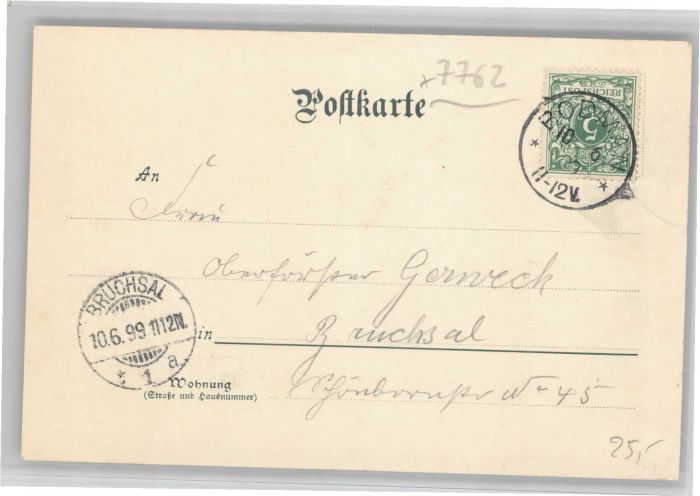 7762
Postkarte
REICHSPOST
5
10 6
11-12V.
An
Frau
Oberförster Gerweck
BRUCHSAL
10.6.99 11 12N.
1 a
in Bruchsal
Wohnung
(Straße und Hausnummer)
Schönbornstr N- 45
25,-